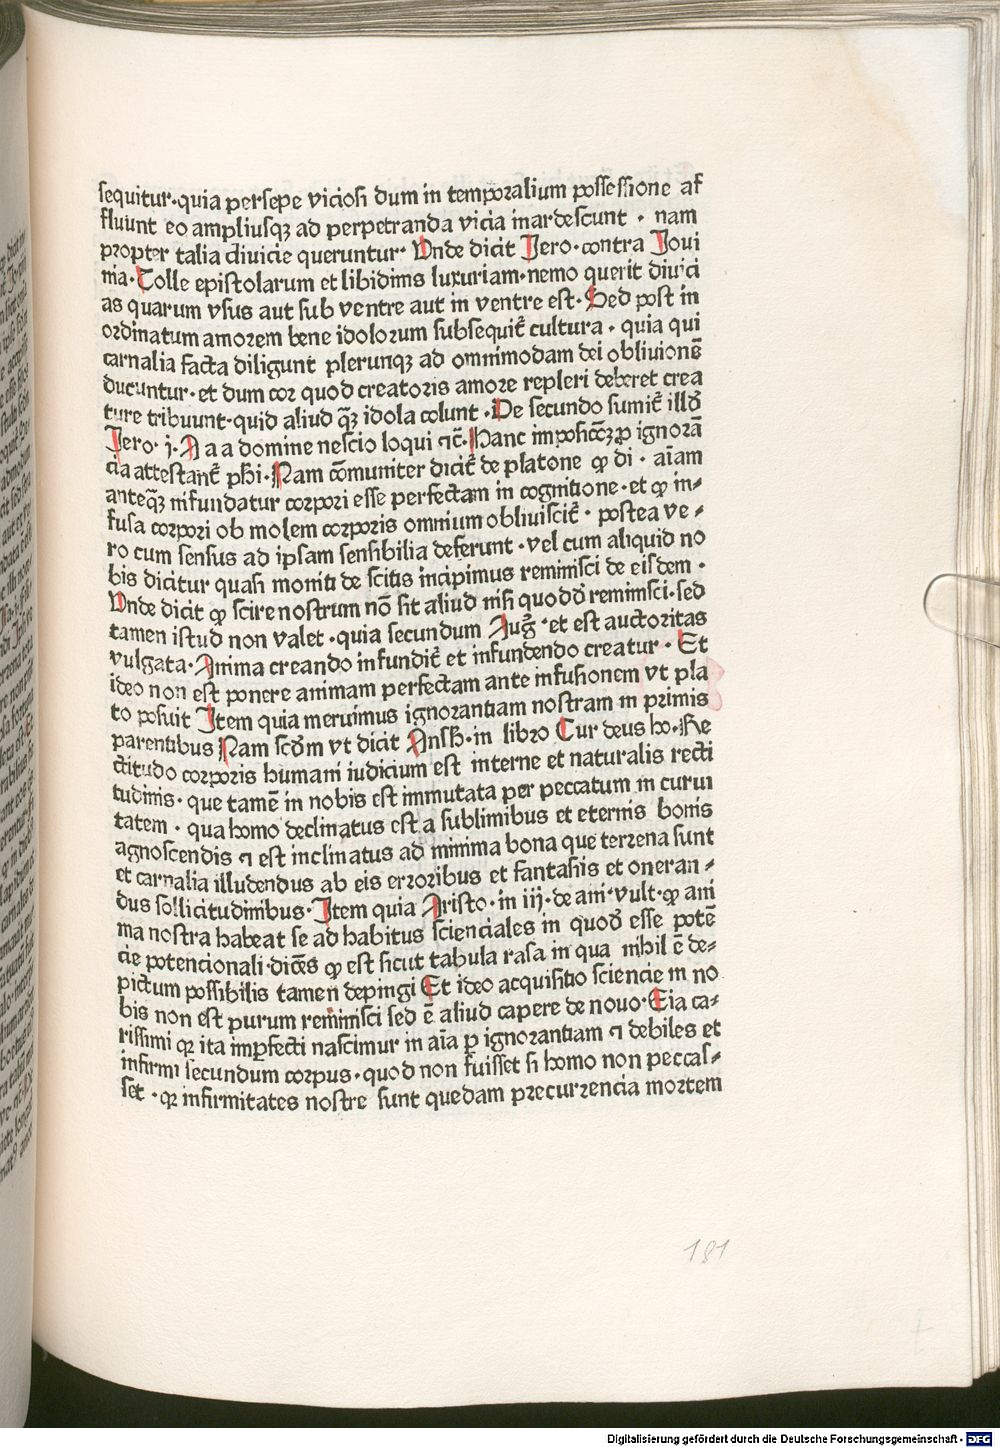 sequitur·quia persepe viciosi dum in temporalium possessione af
fluunt eo ampliusqꝫ ad perpetranda vicia inardescunt · nam
propter talia diuicie queruntur· Vnde dicit Jero·contra Joui
nia·Tolle epistolarum et libidinis luxuriam·nemo querit diuici
as quarum vsus aut sub ventre aut in ventre est·Sed post in
ordinatum amorem bene idolorum subsequit᷑ cultura · quia qui
carnalia facta diligunt plerunqꝫ ad omnimodam dei obliuionē
ducuntur·et dum cor quod creatoris amore repleri deberet crea
ture tribuunt·quid aliud qꝫ̄ idola colunt ·De secundo sumit᷑ illđ
Jero·j·A a a domine nescio loqui ⁊c̄·Hanc imposicōꝫ ꝓ ignorā
cia attestant᷑ phi·Nam cōmuniter dicit᷑ de platone ꝙ di · aīam
anteqꝫ̄ infundatur corpori esse perfectam in cognitione·et ꝙ in⸗
fusa corpori ob molem corporis omnium obliuiscit᷑ · postea ve⸗
ro cum sensus ad ipsam sensibilia deferunt ·vel cum aliquid no
bis dicitur quasi moniti de scitis incipimus reminisci de eisdem ·
Vnde dicit ꝙ scire nostrum nō sit aliud nisi quoddō reminisci·sed
tamen istud non valet ·quia secundum Aug᷑ ·et est auctoritas
vulgata·Anima creando infundit᷑ et infundendo creatur · Et
ideo non est ponere animam perfectam ante infusionem vt pla
to posuit Item quia meruimus ignorantiam nostram in primis
parentibus Nam scdm vt dicit Ansh·in libro Cur deus ho·Re
ctitudo corporis humani iudicium est interne et naturalis recti
tudinis· que tamē in nobis est immutata per peccatum in curui
tatem · qua homo declinatus est a sublimibus et eternis bonis
agnoscendis ⁊ est inclinatus ad minima bona que terrena sunt
et carnalia illudendus ab eis erroribus et fantasiis et oneran⸗
dus sollicitudinibus·Item quia Aristo·in iij·de ani·vult·ꝙ ani
ma nostra habeat se ad habitus scienciales in quođ esse potē
cie potencionali·dicēs ꝙ est sicut tabula rasa in qua nihil ē de⸗
pictum possibilis tamen depingi Et ideo acquisitio sciencie in no
bis non est purum reminisci sed ē aliud capere de nouo·Eia ca⸗
rissimi qꝛ ita imꝑfecti nascimur in aīa ꝑ ignorantiam ⁊ debiles et
infirmi secundum corpus·quod non fuisset si homo non peccas⸗
set ·qꝛ infirmitates nostre sunt quedam precurrencia mortem
191
Digitalisierung gefördert durch die Deutsche Forschungsgemeinschaft - DFG